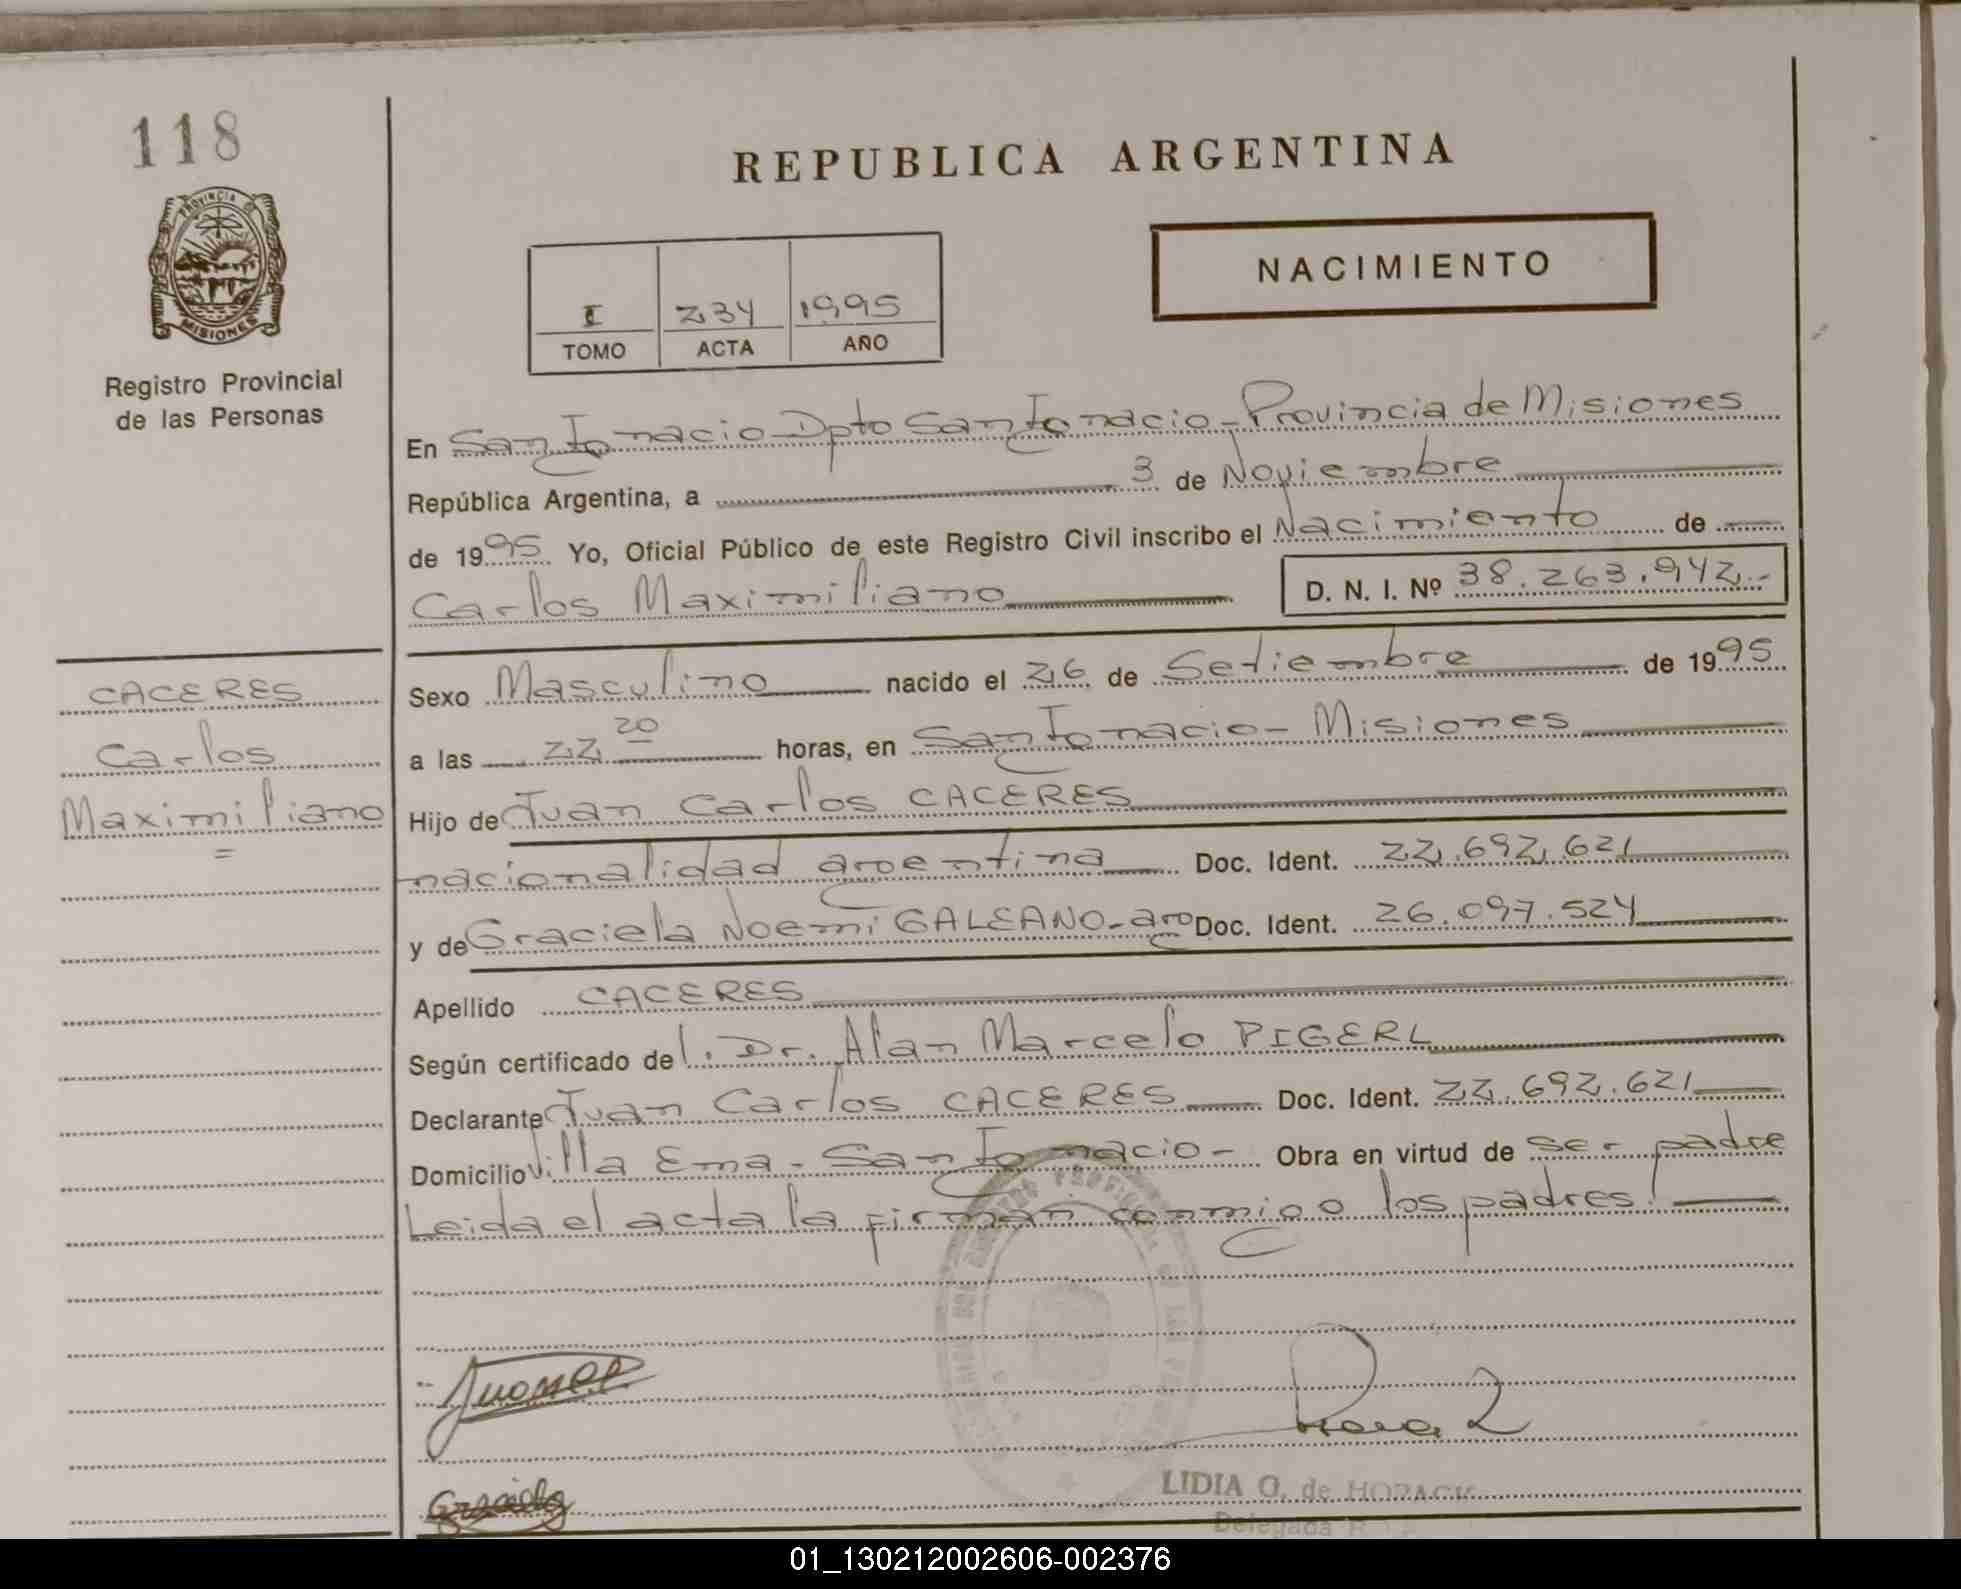 118
REPUBLICA ARGENTINA
PROVINCIA DE
MISIONES
NACIMIENTO
I 234 1995
TOMO ACTA AÑO
Registro Provincial
de las Personas
En San Ignacio-Dpto San Ignacio-Provincia de Misiones
República Argentina, a 3 de Noviembre
de 1995 Yo, Oficial Público de este Registro Civil inscribo el Nacimiento de
Carlos Maximiliano D. N. I. Nº 38.263.942.-
CACERES
Carlos
Maximiliano
=
Sexo Masculino nacido el 26 de Setiembre de 1995
a las 22 20 horas, en San Ignacio- Misiones
Hijo de Juan Carlos CACERES
nacionalidad argentina Doc. Ident. 22.692.621
y de Graciela Noemi GALEANO-arg Doc. Ident. 26.097.524
Apellido CACERES
Según certificado del. Dr. Alan Marcelo PIGERL
Declarante Juan Carlos CACERES Doc. Ident. 22.692.621
Domicilio Villa Ema - San Ignacio- Obra en virtud de ser padre
Leida el acta la firman conmigo los padres!
Graciela
LIDIA O. de HORACK
Delegada
01_130212002606-002376